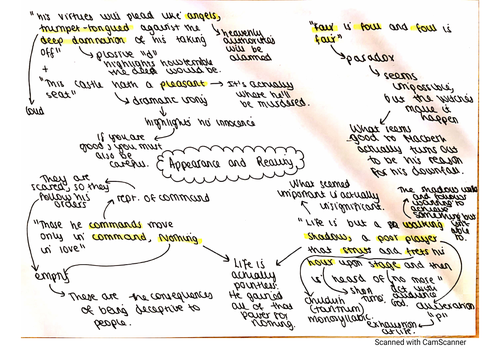 "his virtues will plead like angels,
trumpet-tongued against the
deep damnation of his taking
off"
heavenly
authorities
will be
alarmed
plosive "d"
highlights how terrible
the deed would be.
loud
+
"This castle hath a pleasant
seat"
It's actually
where he'll
be murdered.
dramatic irony
highlights his innocence
If you are
good, you must
also be
careful.
"Fair is foul and foul is
fair"
paradox
seems
impossible,
but the witches
make it
happen
What seems
good to Macbeth
actually turns out
to be his reason
for his downfall.
Appearance and Reality
They are
scared, so they
follow his
orders
rept. of command
"Those he commands move
only in command, nothing
in love"
empty
These are the consequences
of being deceptive to
people.
Life is
actually
pointless.
He gained
all of that
power for
nothing.
What seemed
important is actually
insignificant.
The shadows walk
and follows
wanting to
achieve
something but
able to.
"Life is but a walking
shadow, a poor player
that struts and frets his
hour upon stage and then
is heard of no more"
childish
(tantrum)
monosyllabic.
short
time.
act with
audience
God.
exhaustion
at life.
alliteration
"p"
Scanned with CamScanner